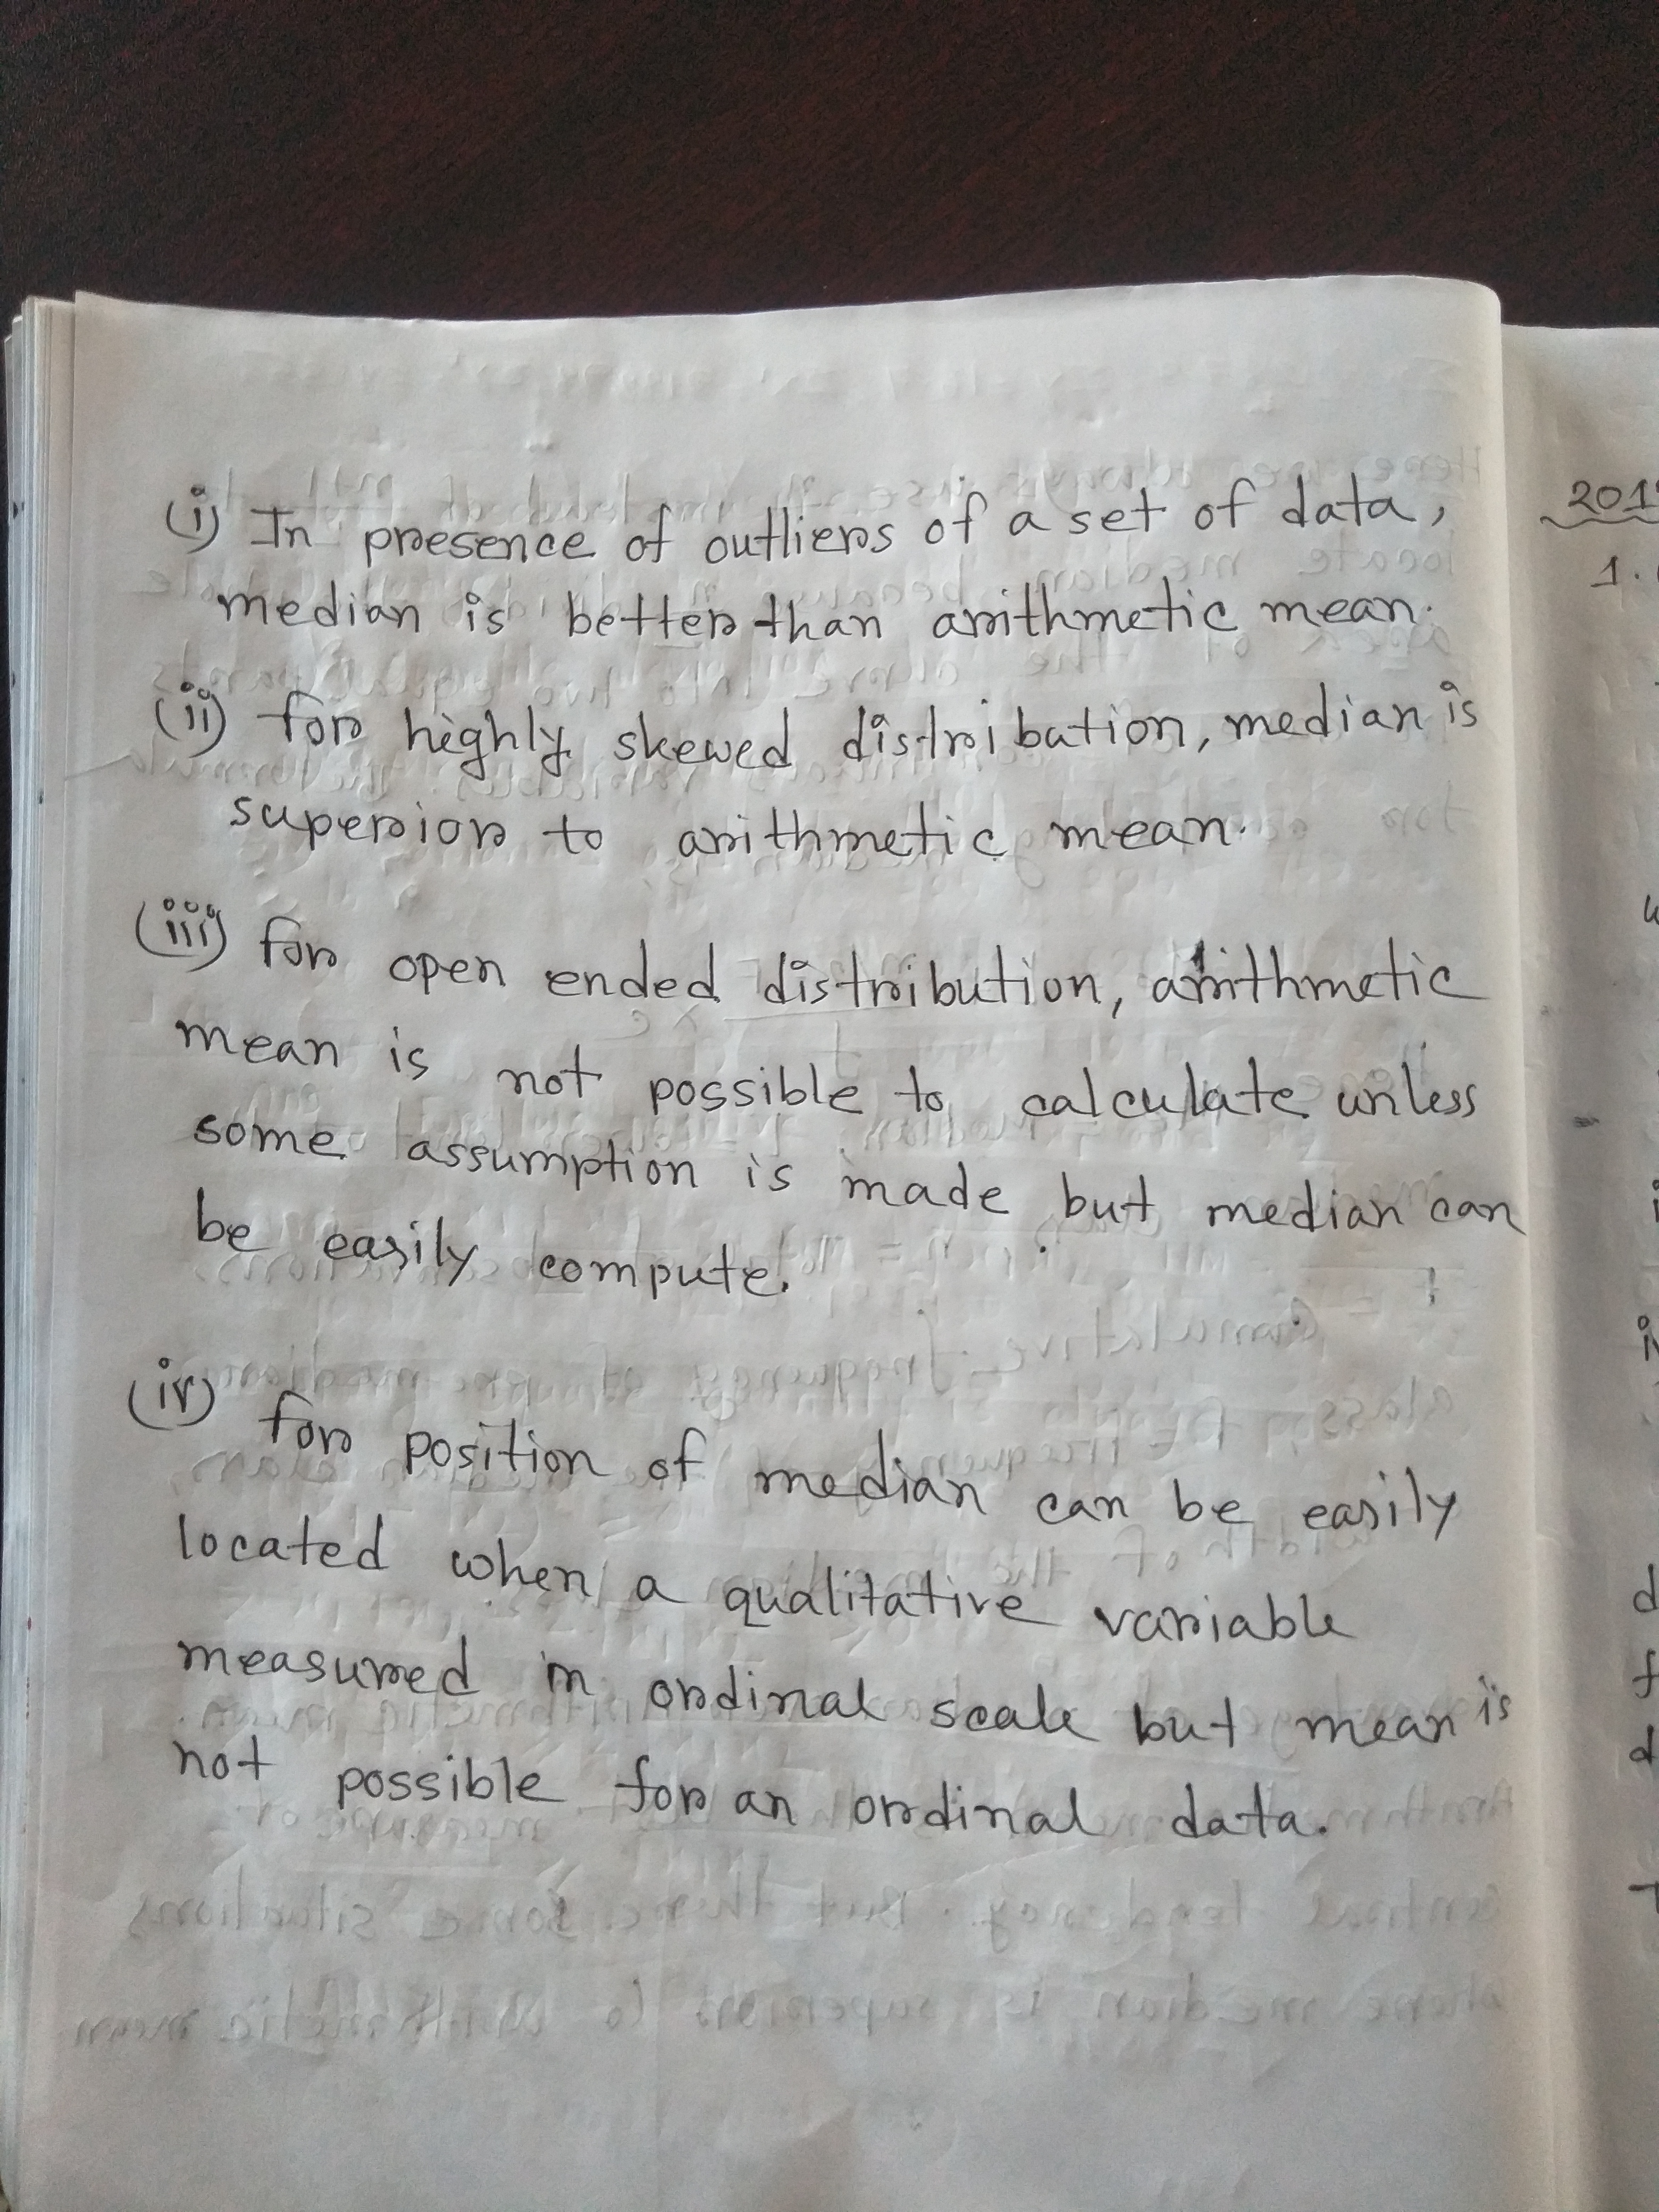 (i) In presence of outliers of a set of data,
median is better than arithmetic mean.
(ii) for highly skewed distribation, median is
superior to arithmetic mean.
(iii) for open ended distribution, arithmetic
mean is not possible to calculate unless
some assumption is made but median can
be easily compute.
(iv) for position of median can be easily
located when a qualitative variable
measured in ordinal scale but mean is
not possible for an ordinal data.
1.